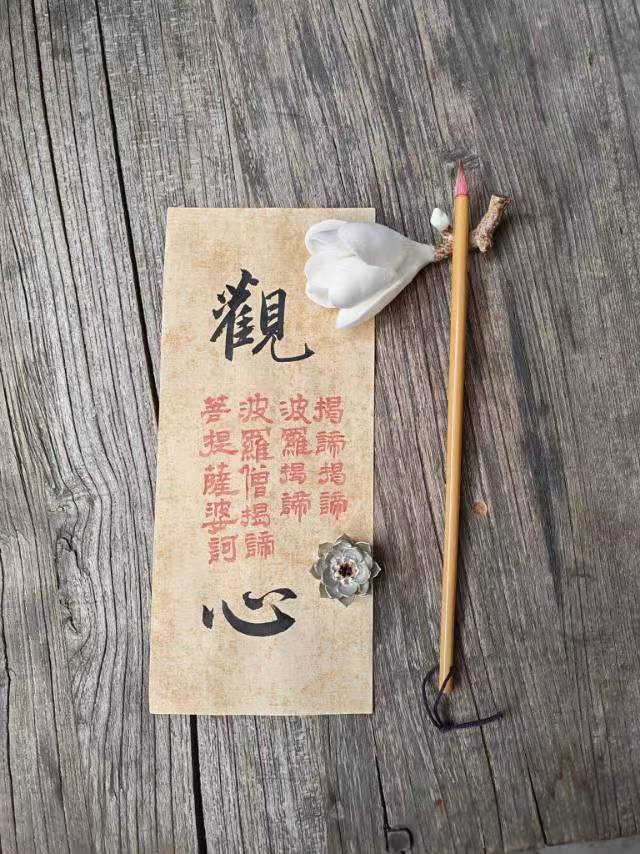 觀
揭諦揭諦
波羅揭諦
波羅僧揭諦
菩提薩婆訶
心